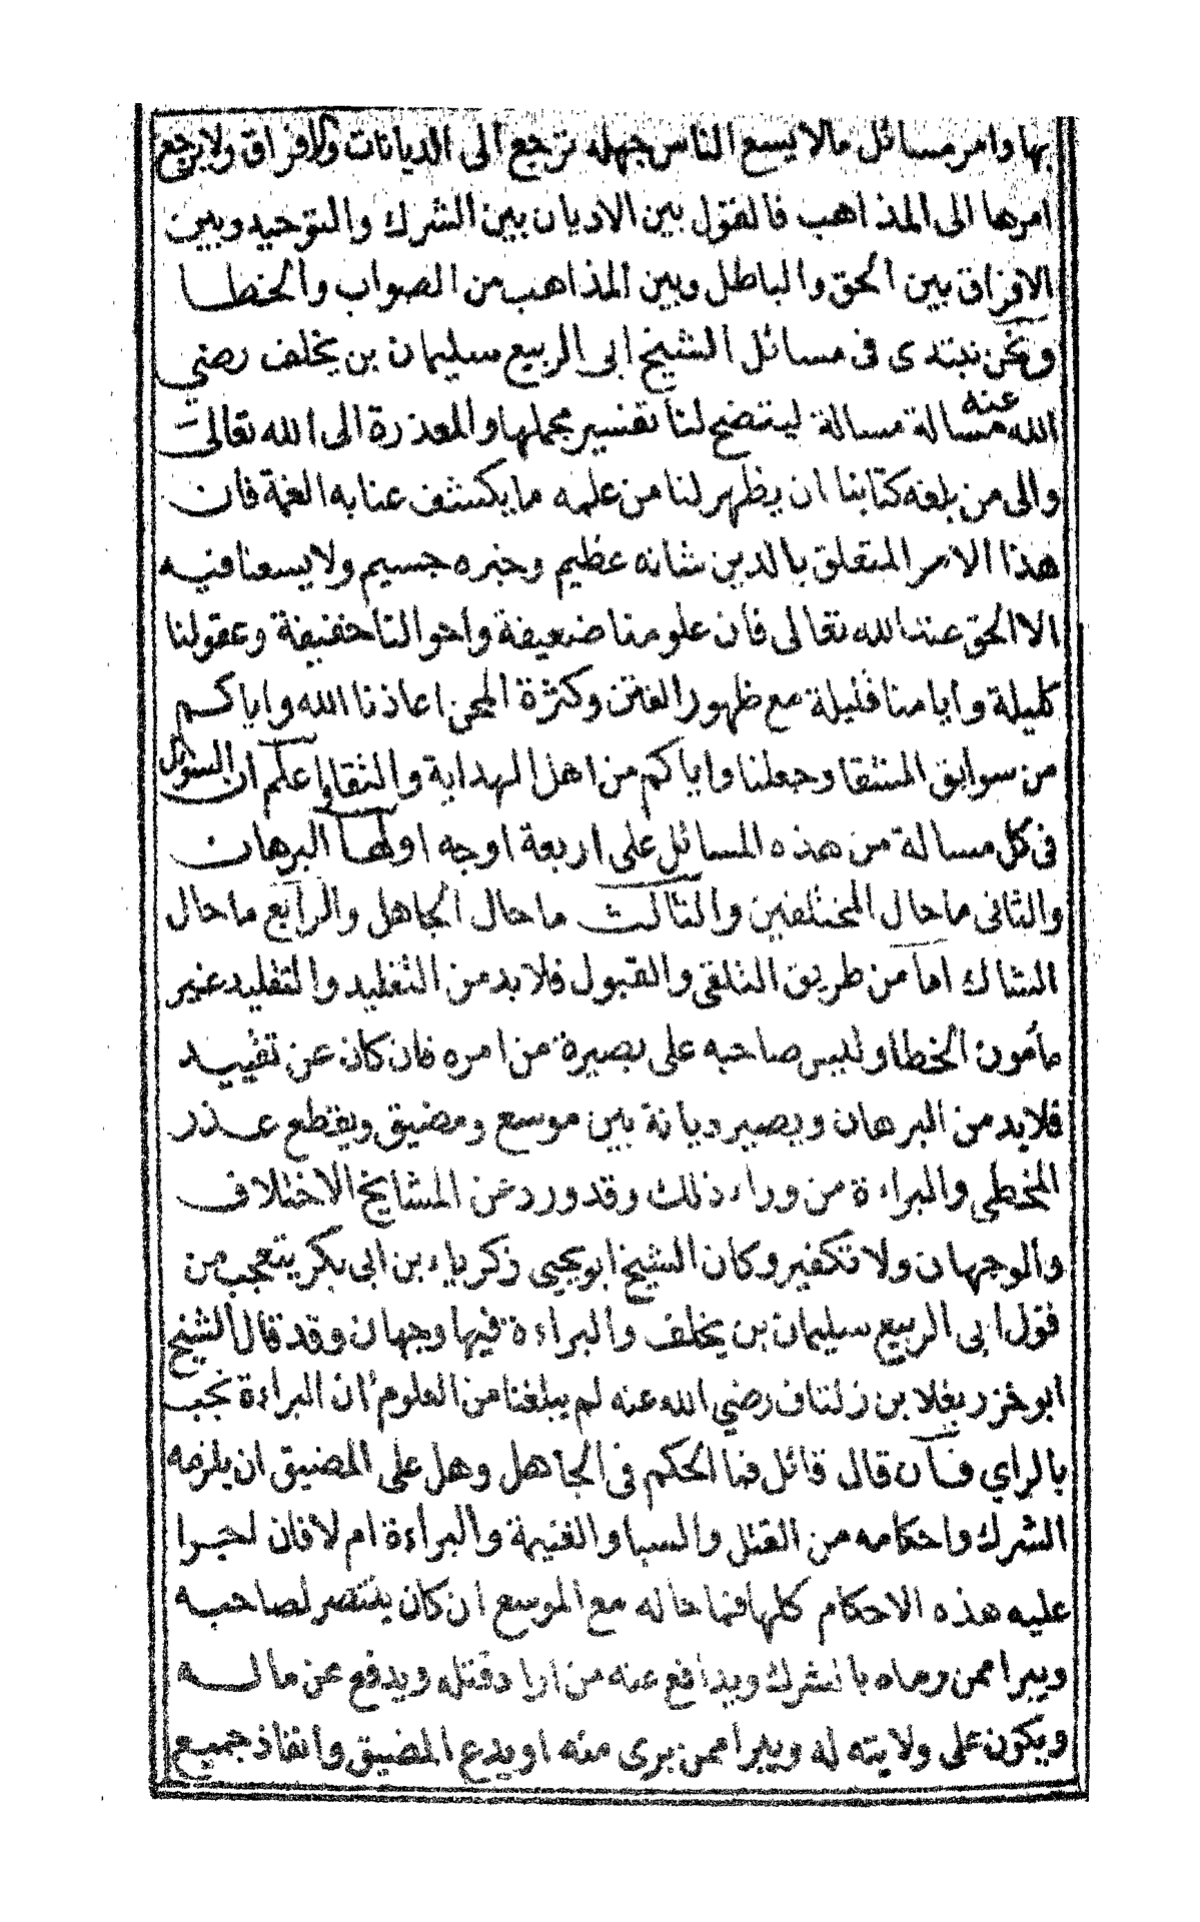 بها وامر مسائل مالا يسع الناس جهله ترجع الى الديانات والافراق ولا يرجع
امرها الى المذاهب فالقول بين الاديان بين الشرك والتوحيد وبين
الافراق بين الحق والباطل وبين المذاهب من الصواب والخطا
ونحن نبتدى فى مسائل الشيخ ابى الربيع سليمان بن يخلف رضي
الله عنه مسالة مسالة ليتضح لنا تفسير مجملها والمعذرة الى الله تعالى
والى من بلغه كتابنا ان يظهر لنا من علمه ما يكشف عنا به الغمة فان
هذا الامر المتعلق بالدين شانه عظيم وخبره جسيم ولا يسعنا فيه
الا الحق عند الله تعالى فان علومنا ضعيفة واحوالنا خفيفة وعقولنا
كليلة وايامنا قليلة مع ظهور الفتن وكثرة المحن اعاذنا الله واياكم
من سوابق الشقا وجعلنا واياكم من اهل الهداية والتقا واعلم ان السوال
فى كل مسالة من هذه المسائل على اربعة اوجه اولها البرهان
والثانى ما حال المختلفين والثالث ما حال الجاهل والرابع ما حال
الشاك اما من طريق التلقى والقبول فلا بد من التقليد والتقليد غير
مأمون الخطا وليس صاحبه على بصيرة من امره فان كان عن تقييد
فلا بد من البرهان ويصير ديانة بين موسع ومضيق ويقطع عذر
المخطى والبراءة من وراء ذلك وقد ورد عن المشايخ الاختلاف
والوجهان ولا تكفير وكان الشيخ ابو يحيى زكرياء بن ابى بكر يتعجب من
قول ابى الربيع سليمان بن يخلف والبراءة فيها وجهان وقد قال الشيخ
ابو خزر يغلا بن زلتاف رضي الله عنه لم يبلغنا من العلوم ان البراءة تجب
بالراي فان قال قائل فما الحكم فى الجاهل وهل على المضيق ان يلزمه
الشرك واحكامه من القتل والسبا والغنيمة والبراءة ام لا فان اجرا
عليه هذه الاحكام كلها فما حاله مع الموسع ان كان يقتصر لصاحبه
ويبرا ممن رماه بالشرك ويدافع عنه من اراد قتله ويدفع عن ماله
ويكون على ولايته له ويبرا ممن برى منه او يدع المضيق وانفاذ جميع